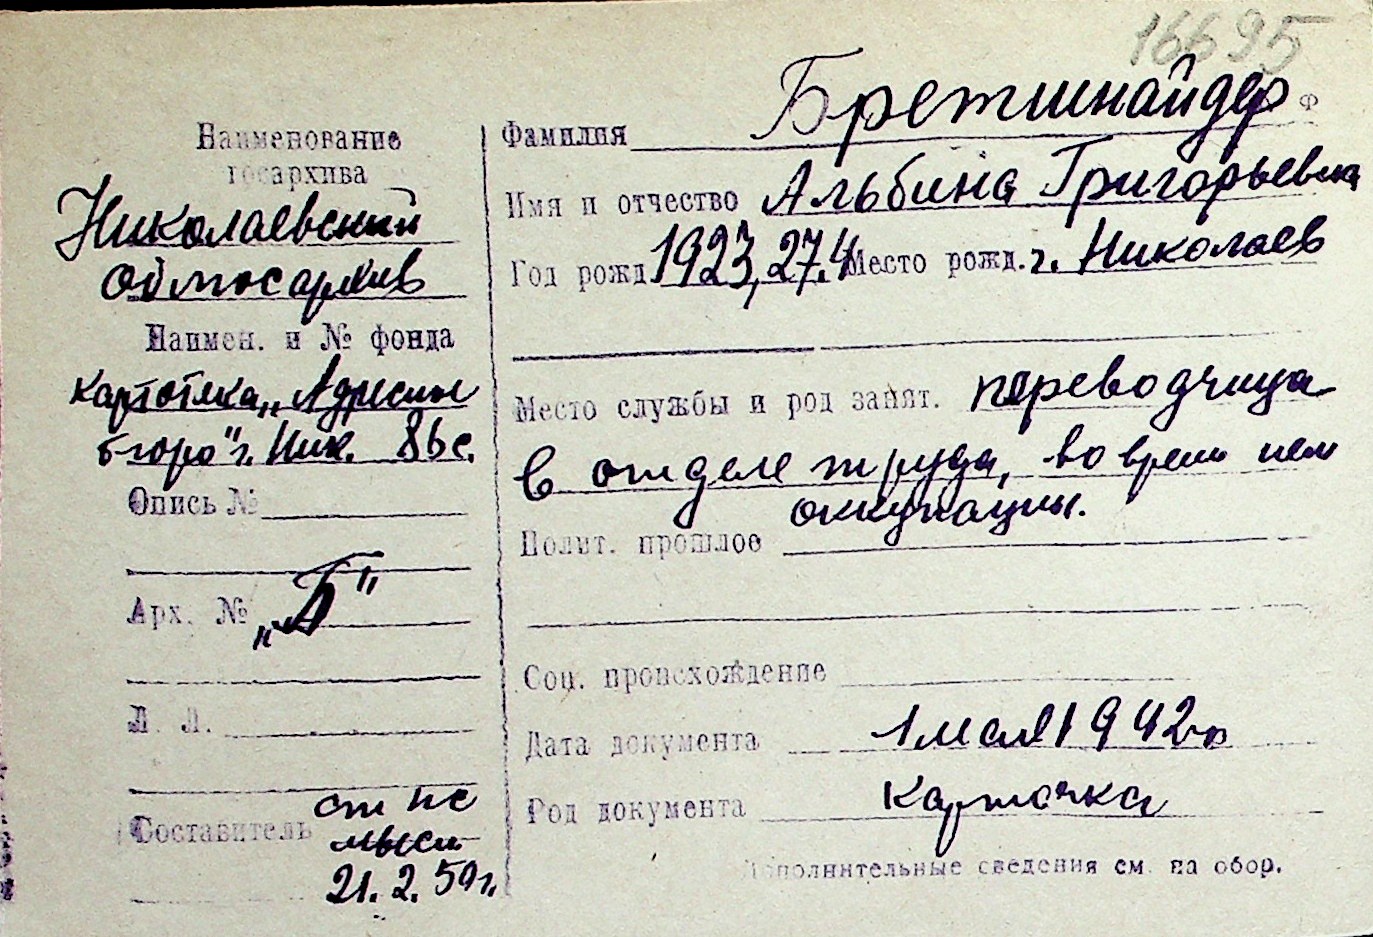 16695
Наименование
госархива
Николаевский
Облгосархив
Наимен. и № фонда
картотека „Адресн
бюро" г. Ник. 86 с.
Опись №
Арх. № „Б"
Л. Л.
Составитель ст нс
21. 2. 59 г.
Ф
Фамилия Бретшнайдер
Имя и отчество Альбина Григорьевна
Год рожд 1923, 27.4 Место рожд. г. Николаев
Место службы и род занят. переводчица
в отделе труда, во время нем
оккупации.
Полит. прошлое
Соц. происхождение
Дата документа 1 мая 1942 г
Род документа карточка
Дополнительные сведения см. на обор.